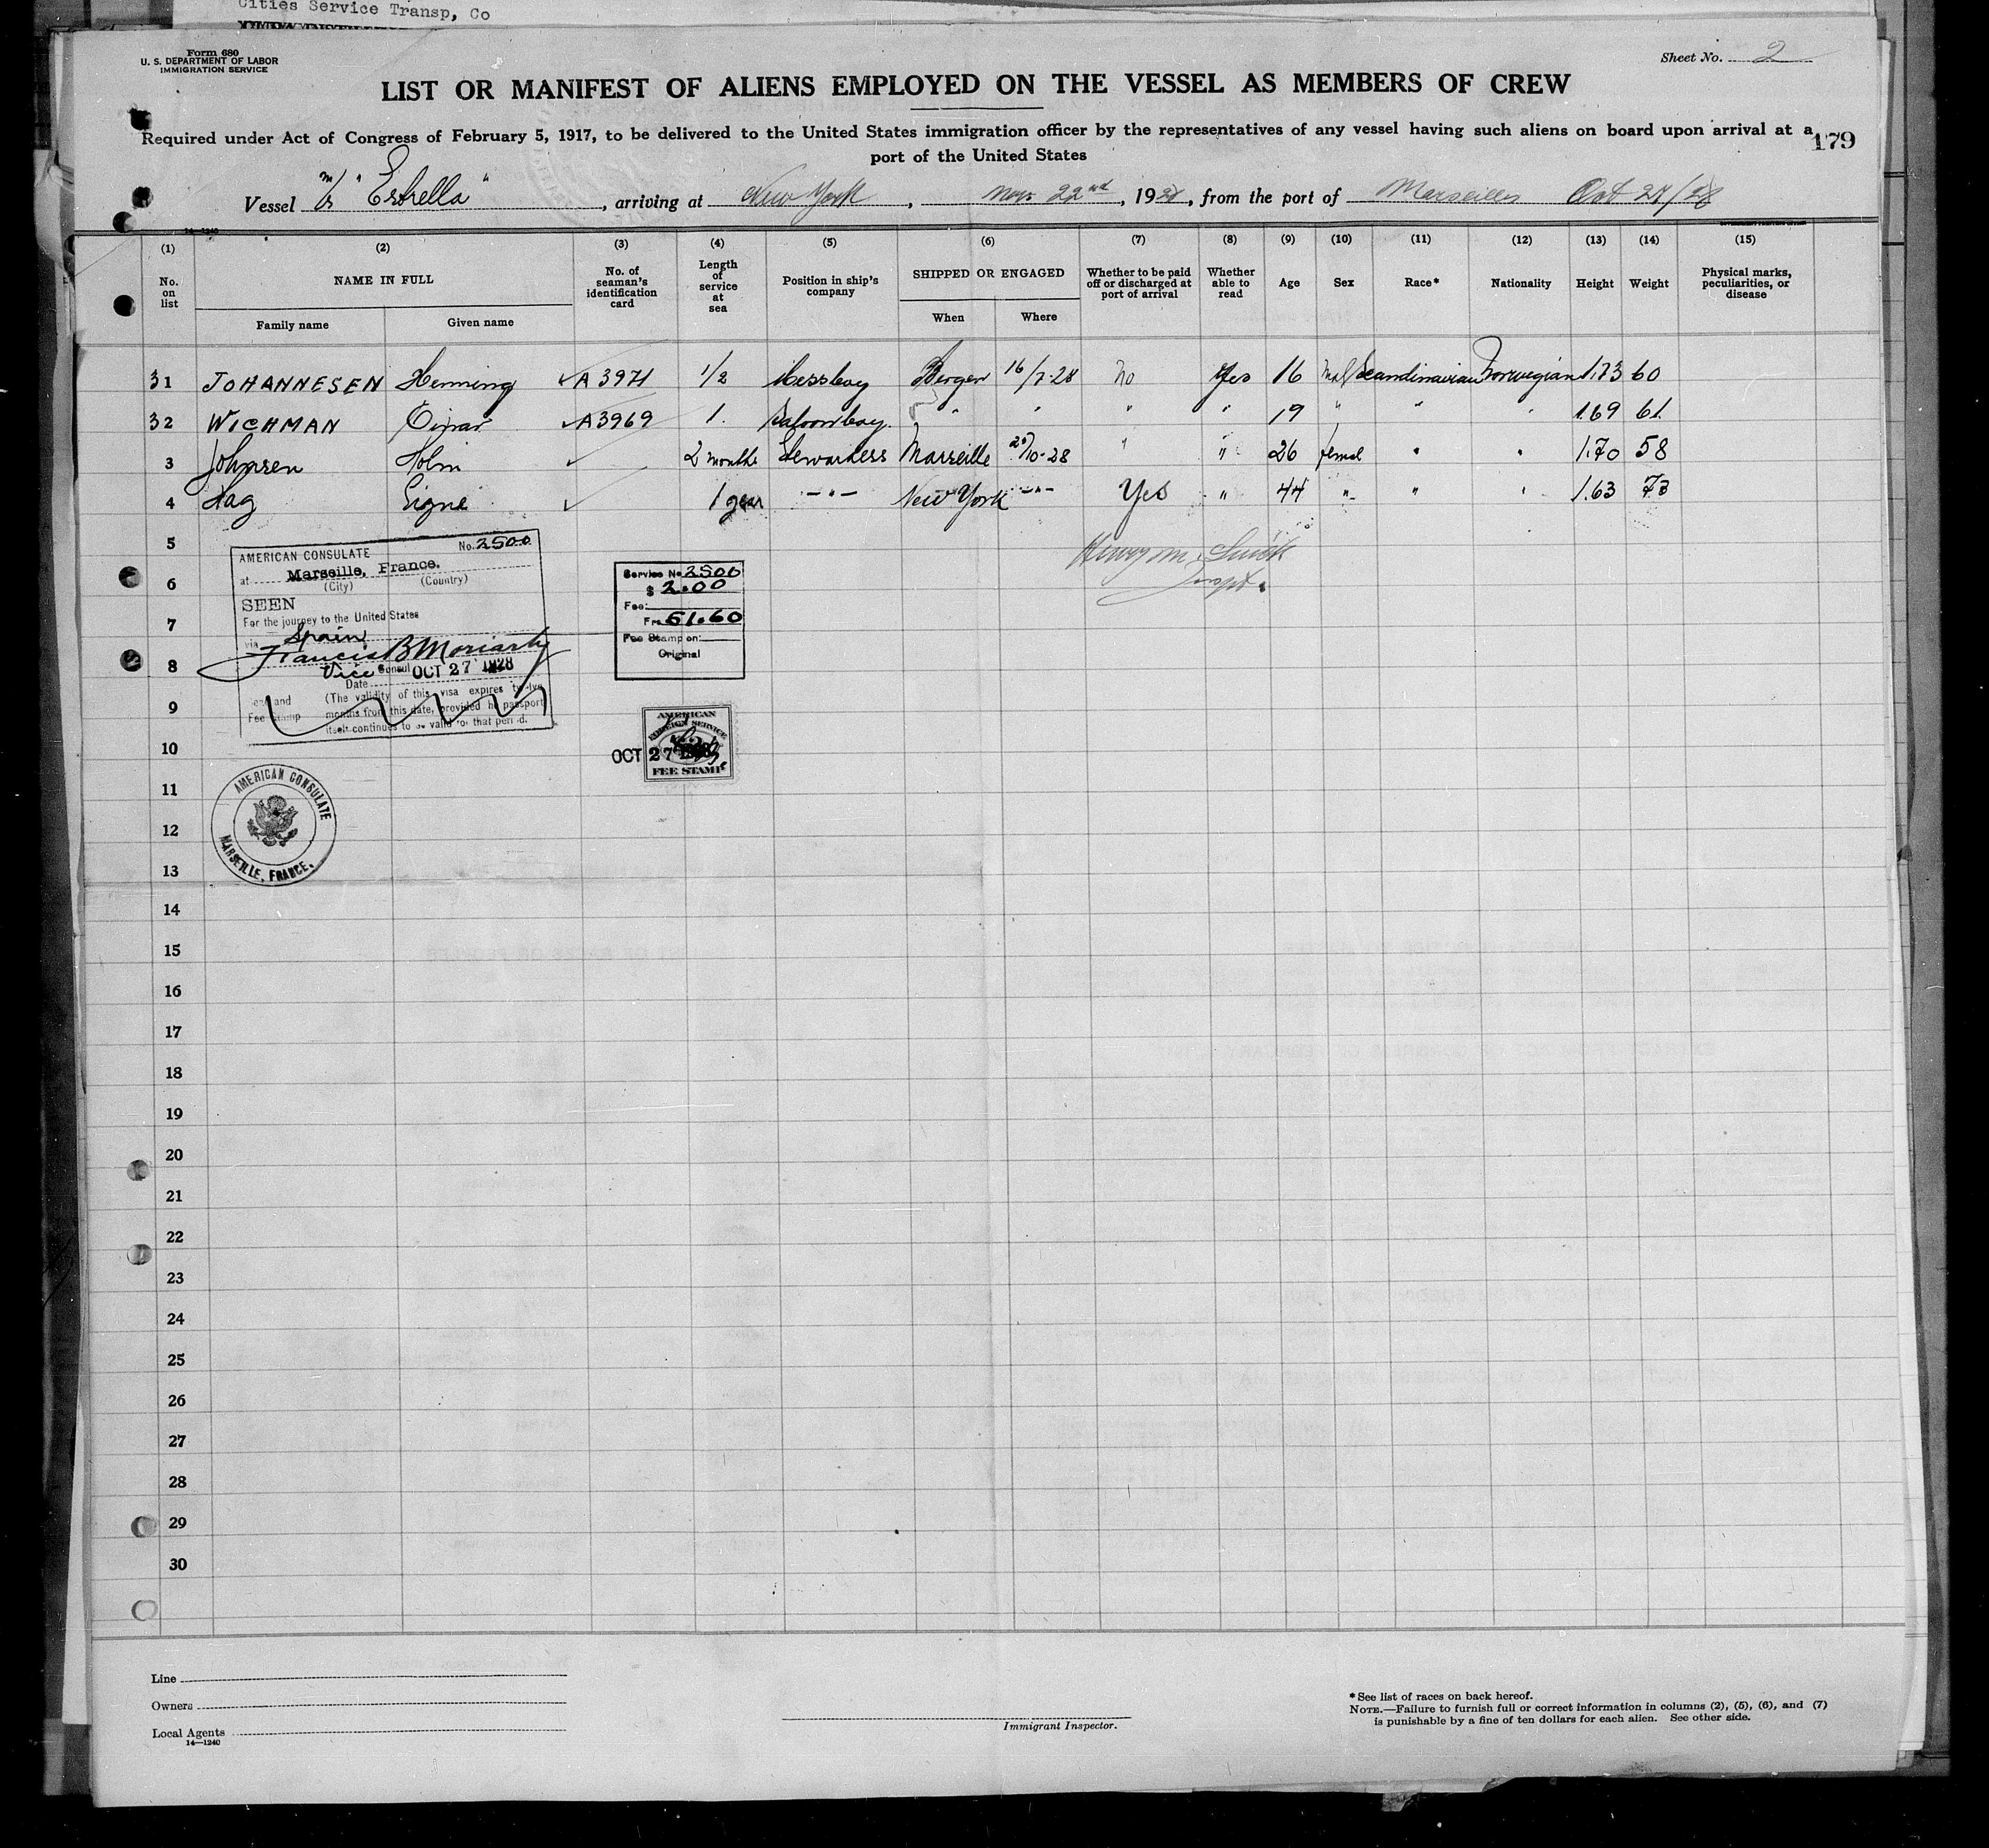 Cities Service Transp, Co
Form 680
U. S. DEPARTMENT OF LABOR
IMMIGRATION SERVICE
Sheet No. 2
LIST OR MANIFEST OF ALIENS EMPLOYED ON THE VESSEL AS MEMBERS OF CREW
Required under Act of Congress of February 5, 1917, to be delivered to the United States immigration officer by the representatives of any vessel having such aliens on board upon arrival at a
port of the United States
179
Vessel M/S "Estrella", arriving at New York, Nov. 22nd, 1928, from the port of Marseilles Oct 27/28
14—1240
(1) (2) (3) (4) (5) (6) (7) (8) (9) (10) (11) (12) (13) (14) (15)
No. on list NAME IN FULL No. of seaman's identification card Length of service at sea Position in ship's company SHIPPED OR ENGAGED Whether to be paid off or discharged at port of arrival Whether able to read Age Sex Race* Nationality Height Weight Physical marks, peculiarities, or disease
Family name Given name When Where
31 JOHANNESEN Henning A 3971 1/2 Messboy Bergen 16/7-28 No Yes 16 Mal Scandinavian Norwegian 1.73 60
32 WICHMAN Einar A3969 1. Saloonboy. " " " " 19 " " " 1.69 61.
3 Johnsen Holm 2 months Stewardess Marseille 20/10-28 " " 26 femal " " 1.70 58
4 Hag Signe 1 year -"- New York -"- Yes " 44 " " " 1.63 73
5
6
7
8
9
10
11
12
13
14
15
16
17
18
19
20
21
22
23
24
25
26
27
28
29
30
Henry M. Smith
Inspt.
AMERICAN CONSULATE No. 2500
at Marseille, France.
(City) (Country)
SEEN
For the journey to the United States
via Spain
Francis B Moriarty
Vice Consul OCT 27 1928
Date
(The validity of this visa expires twelve
months from this date, provided he passport
itself continues to be valid for that period.
Seal and
Fee Stamp
Service No 2500
$ 2.00
Fee:
Frs 51.60
Fee Stamp on:
Original
AMERICAN
FOREIGN SERVICE
OCT 27 1928
FEE STAMP
AMERICAN CONSULATE
MARSEILLE, FRANCE.
Line
Owners
Local Agents
14—1240
Immigrant Inspector.
*See list of races on back hereof.
NOTE.—Failure to furnish full or correct information in columns (2), (5), (6), and (7)
is punishable by a fine of ten dollars for each alien. See other side.